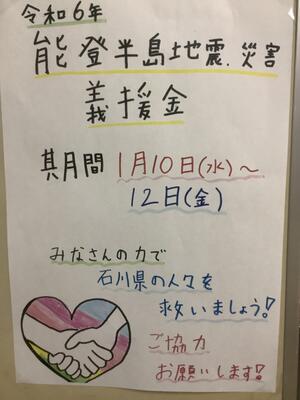 令和6年
能登半島地震.災害
義援金
期間 1月10日(水)～
12日(金)
みなさんの力で
石川県の人々を
救いましょう!
ご協力
お願いします!